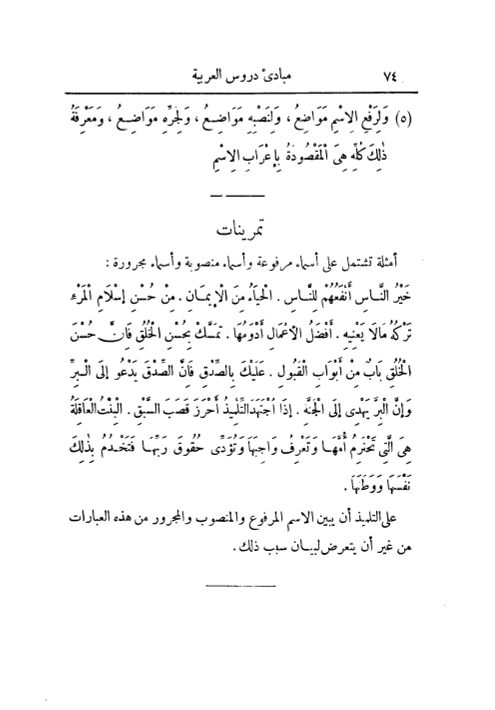 ٧٤ مبادئ دروس العربية
(٥) وَلِرَفْعِ الِاسْمِ مَوَاضِعُ، وَلِنَصْبِهِ مَوَاضِعُ، وَلِجَرِّهِ مَوَاضِعُ، وَمَعْرِفَةُ
ذٰلِكَ كُلِّهِ هِىَ الْمَقْصُودَةُ بِإِعْرَابِ الِاسْمِ
تمرينات
أمثلة تشتمل على أسماء مرفوعة وأسماء منصوبة وأسماء مجرورة :
خَيْرُ النَّاسِ أَنْفَعُهُمْ لِلنَّاسِ . الْحَيَاءُ مِنَ الْإِيمَانِ . مِنْ حُسْنِ إِسْلَامِ الْمَرْءِ
تَرْكُهُ مَالَا يَعْنِيهِ . أَفْضَلُ الْأَعْمَالِ أَدْوَمُهَا . تَمَسَّكْ بِحُسْنِ الْخُلُقِ فَإِنَّ حُسْنَ
الْخُلُقِ بَابٌ مِنْ أَبْوَابِ الْقَبُولِ . عَلَيْكَ بِالصِّدْقِ فَإِنَّ الصِّدْقَ يَدْعُو إِلَى الْبِرِّ
وَإِنَّ الْبِرَّ يَهْدِى إِلَى الْجَنَّةِ . إِذَا اجْتَهَدَ التِّلْمِيذُ أَحْرَزَ قَصَبَ السَّبْقِ . الْبِنْتُ الْعَاقِلَةُ
هِىَ الَّتِى تَحْتَرِمُ أُمَّهَا وَتَعْرِفُ وَاجِبَهَا وَتُؤَدِّى حُقُوقَ رَبِّهَا فَتَخْدُمُ بِذٰلِكَ
نَفْسَهَا وَوَطَنَهَا .
على التلميذ أن يبين الاسم المرفوع والمنصوب والمجرور من هذه العبارات
من غير أن يتعرض لبيان سبب ذلك .